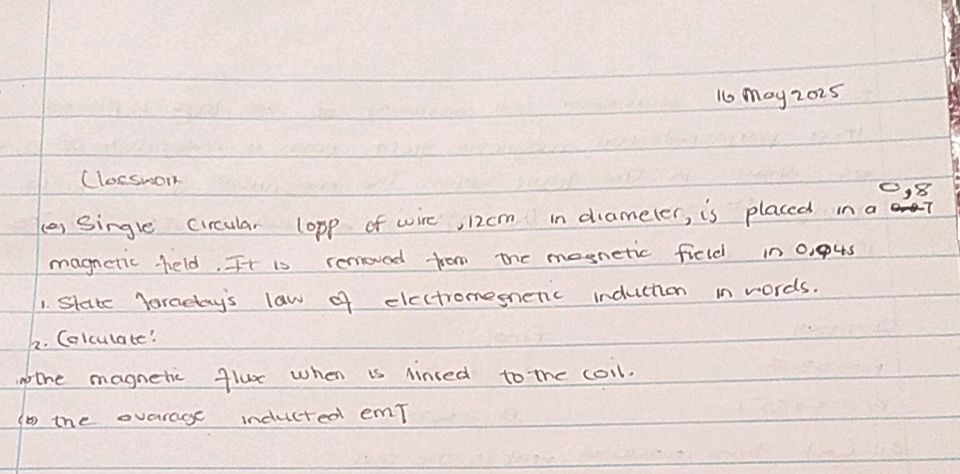 16 May 2025
Classwork
(a) Single circular lopp of wire, 12cm in diameter, is placed in a 0,8 T
magnetic field. It is removed from the magnetic field in 0,04s
1. State faraday's law of electromegnetic induction in words.
2. Calculate:
the magnetic flux when is linked to the coil.
(b) the avarage inducted emf